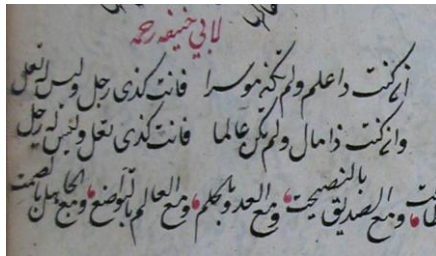 لابي حنيفه رحمه
ان كنت ذا علم ولم تكن موسرا فانت كذي رجل وليس له نعل
وان كنت ذا مال ولم تكن عالما فانت كذي نعل وليس له رجل
ومع الصديق بالنصيحت ومع العدو بالحلم ومع العالم بالتواضع ومع الجاهل بالصمت